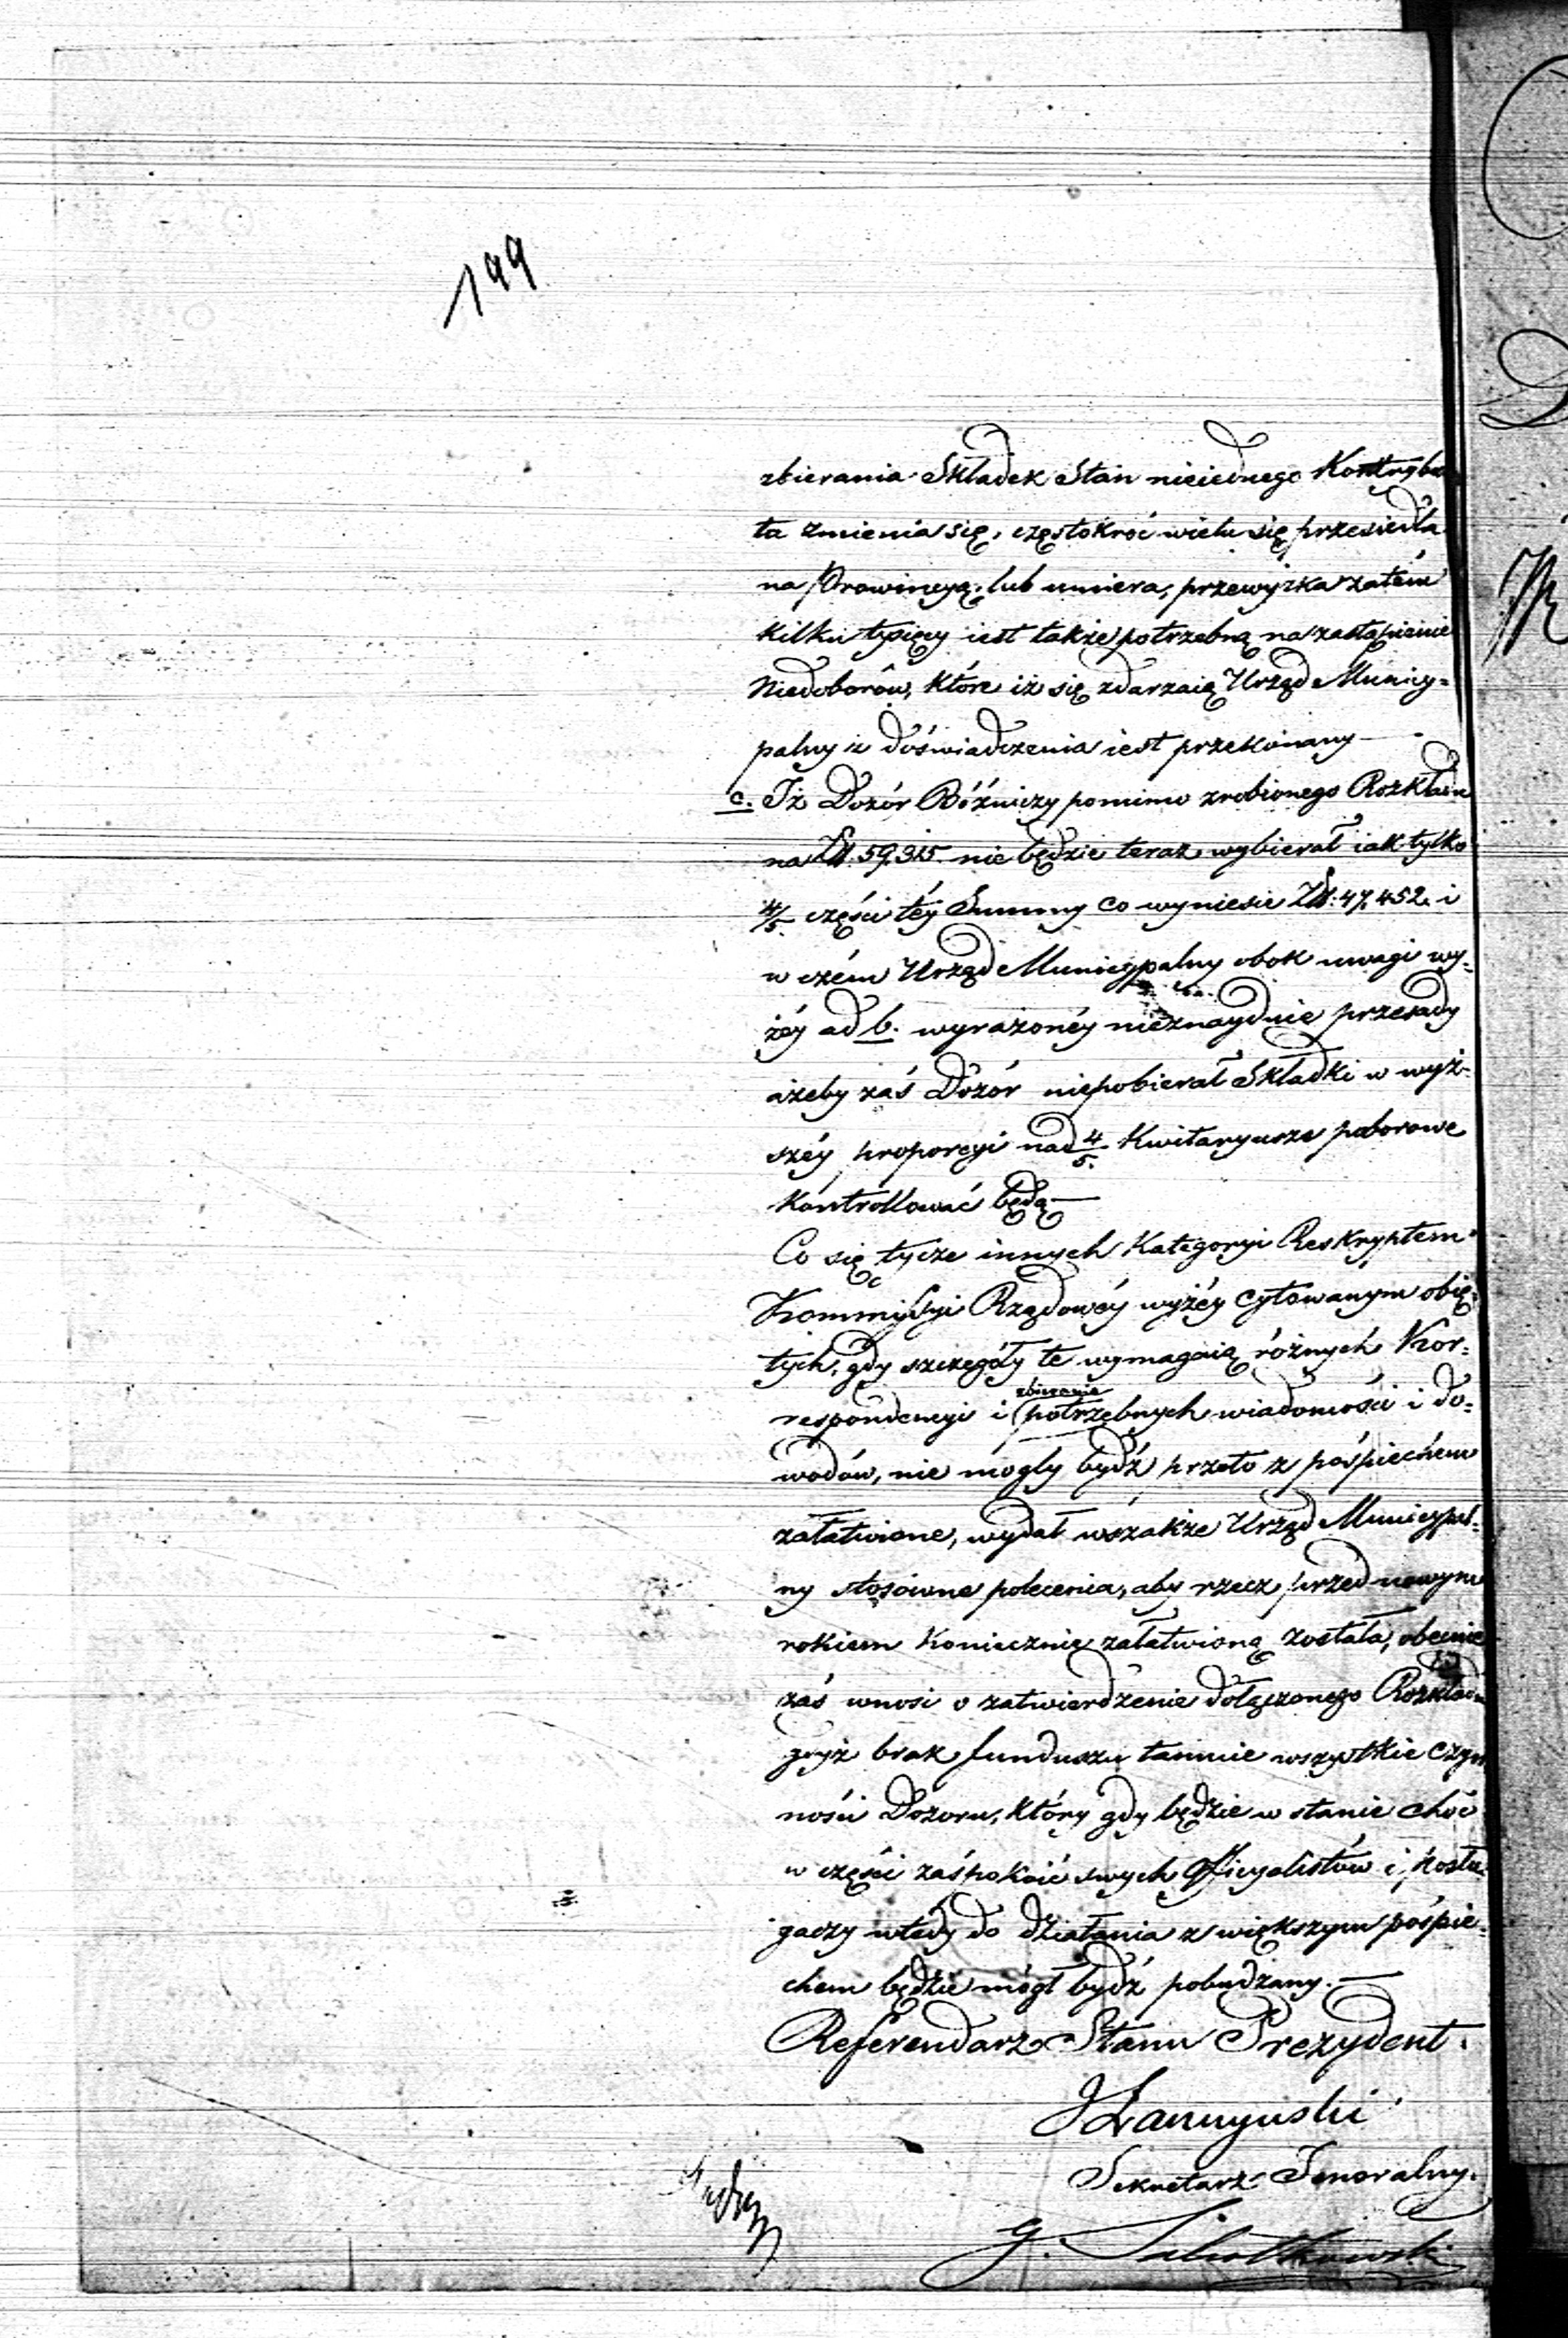 199
zbierania Składek Stan nieiednego Kontrybu
ta zmienia się, częstokroć wielu się przesiedla
na Prowincyą, lub umiera, przewyżka zatém
kilku tysięcy iest także potrzebną na zastąpienie
Niedoborów, które iż się zdarzaią Urząd Municy=
palny z doświadczenia iest przekonany —
c. Iż Dozór Bóźniczy pomimo zrobionego Rozkładu
na Zł. 59,315. nie będzie teraz wybierał iak tylko
4/5. części téy Summy co wyniesie Zł: 47,452. i
w czém Urząd Municypalny obok uwagi wy=
żéy ad b. wyrażonéy nieznayduie przesady
ażeby zaś Dozór niepobierał Składki w wyż=
széy proporcyi nad 4/5. Kwitaryusze poborowe
kontrollować będą —
Co się tycze innych Kategoryi Reskryptem
Kommissyi Rządowéy wyżéy cytowanym obię=
tych, gdy szczegóły te wymagaią różnych Kor=
respondencyi i zbieranie potrzebnych wiadomości i do=
wodów, nie mogły bydź przeto z pośpiechem
załatwione, wydał wszakże Urząd Municypal=
ny stosowne polecenia, aby rzecz przed nowym
rokiem koniecznie załatwioną została, obecnie
zaś wnosi o zatwierdzenie dołączonego Rozkładu
gdyż brak funduszu tamuie wszystkie czyn
ności Dozoru, który gdy będzie w stanie choć
w części zaspokoić swych Officyalistów i posłu=
gaczy wtedy do działania z większym pośpie=
chem będzie mógł bydź pobudzany. —
Referendarz Stanu Prezydent.
Sekretarz Jeneralny.
G.